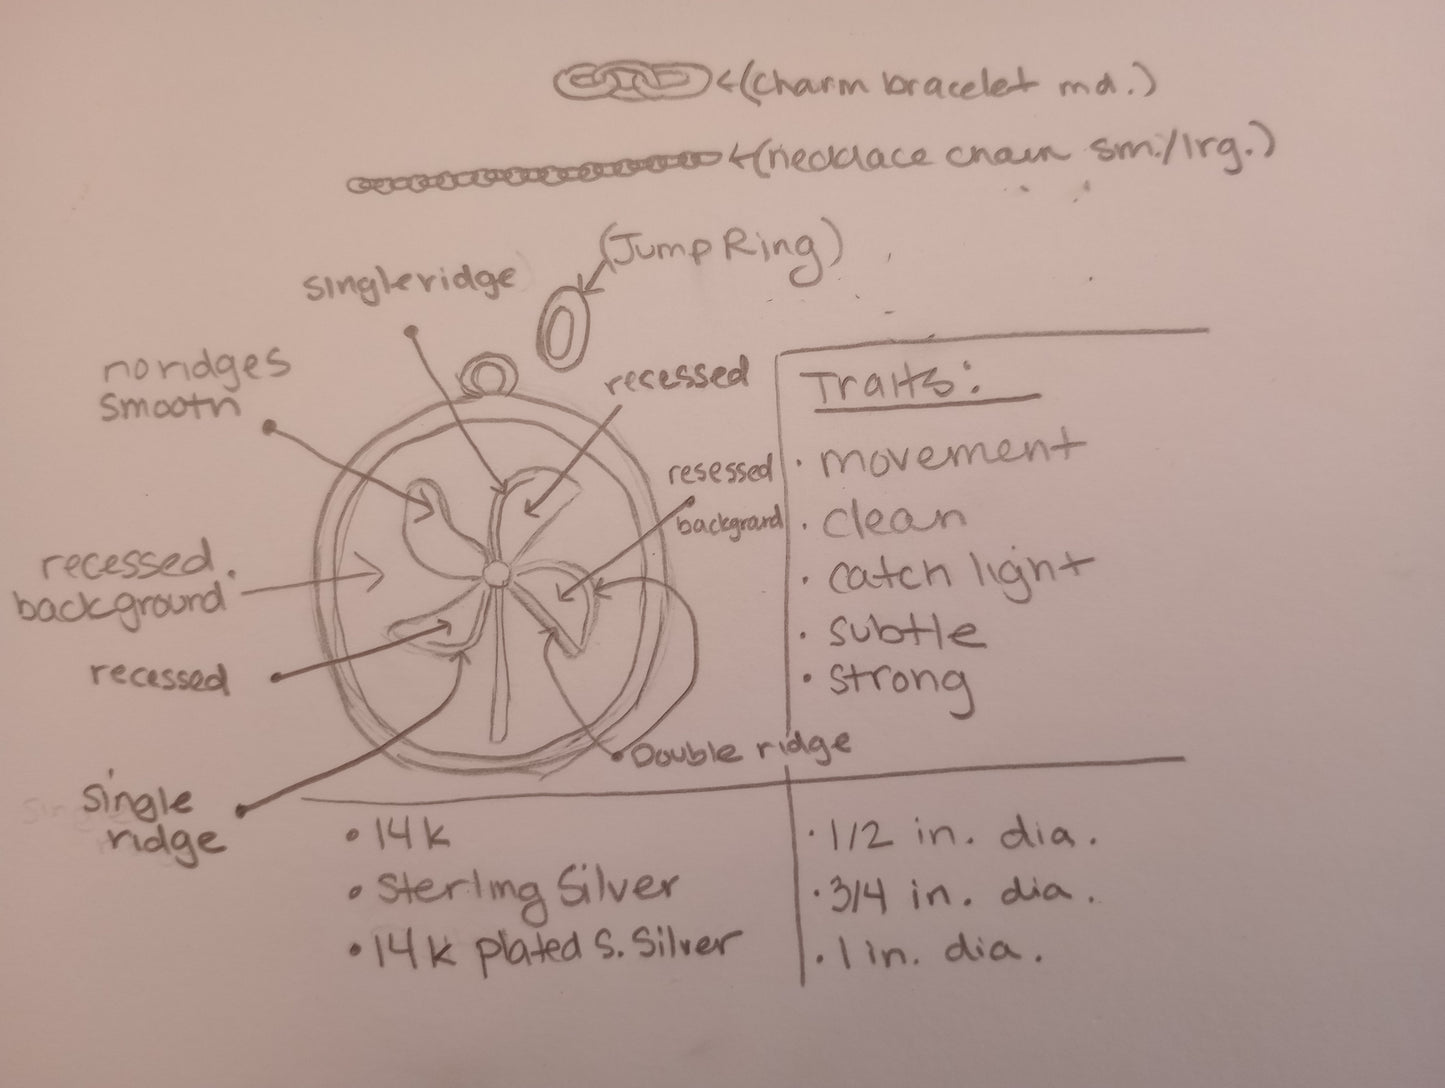 (charm bracelet md.)
(necklace chain sm./lrg.)
(Jump Ring)
single ridge
no ridges
smooth
recessed
resessed
backgrand
recessed
background
recessed
single
ridge
Double ridge
Traits:
• movement
• clean
• catch light
• subtle
• strong
• 14k
• Sterling Silver
• 14k plated S. Silver
• 1/2 in. dia.
• 3/4 in. dia.
• 1 in. dia.